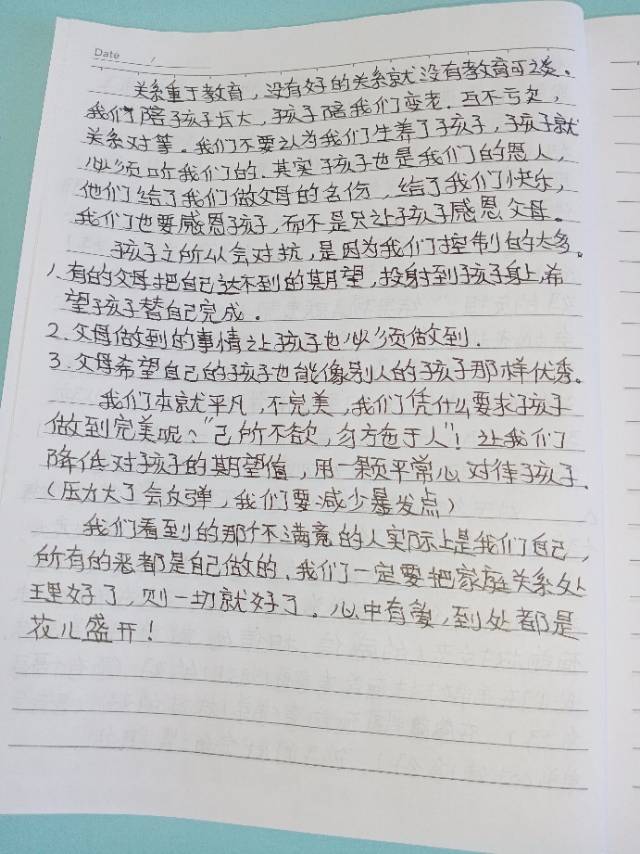 Date
关系重于教育，没有好的关系就没有教育可谈。
我们陪孩子长大，孩子陪我们变老。互不亏欠，
关系对等。我们不要认为我们生养了孩子，孩子就
必须听我们的。其实孩子也是我们的恩人，
他们给了我们做父母的名份，给了我们快乐，
我们也要感恩孩子，而不是只让孩子感恩父母。
孩子之所以会对抗，是因为我们控制的太多。
1、有的父母把自己达不到的期望，投射到孩子身上，希
望孩子替自己完成。
2.父母做到的事情让孩子也必须做到.
3.父母希望自己的孩子也能像别人的孩子那样优秀。
我们本就平凡，不完美，我们凭什么要求孩子
做到完美呢、"己所不欲，勿施于人"！让我们
降低对孩子的期望值，用一颗平常心对待孩子.
（压力大了会反弹，我们要减少暴发点）
我们看到的那个不满意的人实际上是我们自己，
所有的恶都是自己做的、我们一定要把家庭关系处
理好了，则一切就好了。心中有爱，到处都是
花儿盛开！